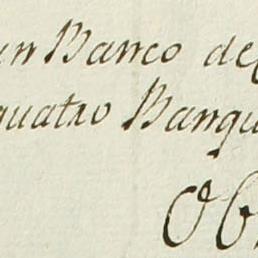 un Banco de
quatro Banqu
Ob